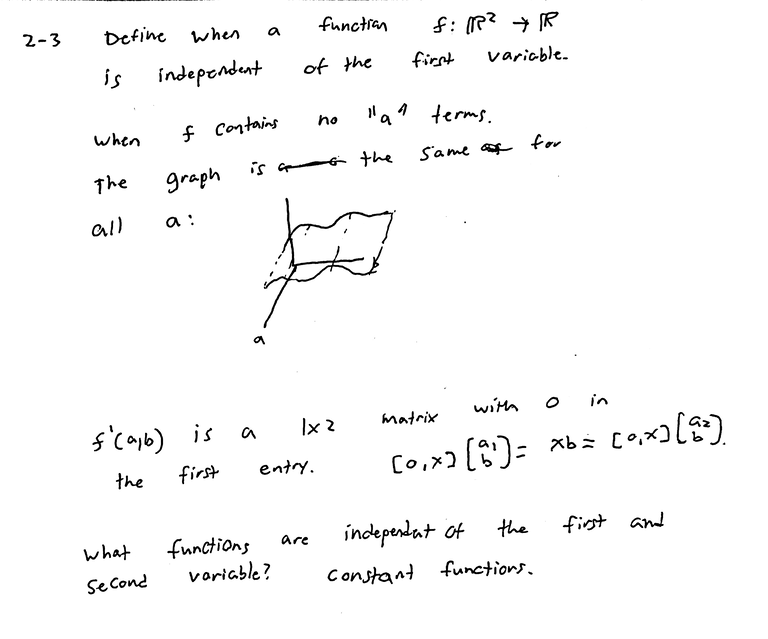 2-3 Define when a function f: ℝ² → ℝ
is independent of the first variable.
When f contains no "a" terms.
The graph is the same for
all a:
b
a
f'(a,b) is a 1x2 matrix with 0 in
the first entry. [0,x][a₁ b] = xb = [0,x][a₂ b].
What functions are independat of the first and
second variable? Constant functions.